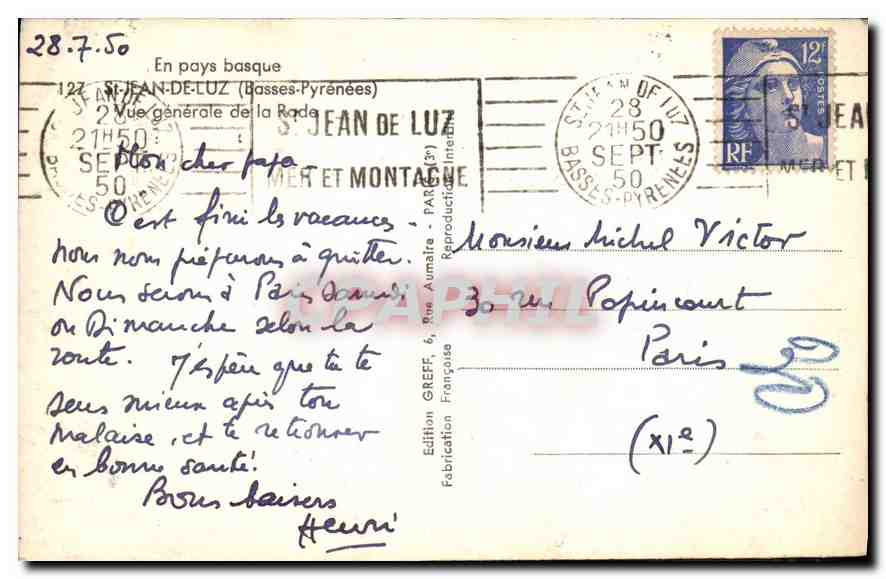 28.7.50
En pays basque
127 St-JEAN-DE-LUZ (Basses-Pyrénées)
Vue générale de la Rade
ST JEAN DE LUZ
28
21H50
SEPT
50
BASSES-PYRENEES
ST JEAN DE LUZ
MER ET MONTAGNE
ST JEAN DE LUZ
28
21H50
SEPT
50
BASSES-PYRENEES
12F
POSTES
RF
ST JEA
MER ET
Mon cher papa -
C'est fini les vacances -
nous nous préparons à quitter.
Nous serons à Paris samedi
ou Dimanche selon la
route. J'espère que tu te
sens mieux après ton
malaise, et te retrouver
en bonne santé!
Bons baisers
Henri
Edition GREFF, 6, Rue Aumaire - PARIS (3e)
Fabrication Française Reproduction Interdite
Monsieur Michel Victor
30 rue Popincourt
Paris
(XIe)
CPAPHIL